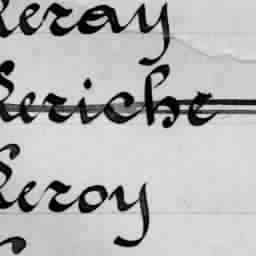 Leray
Leriche
Leroy